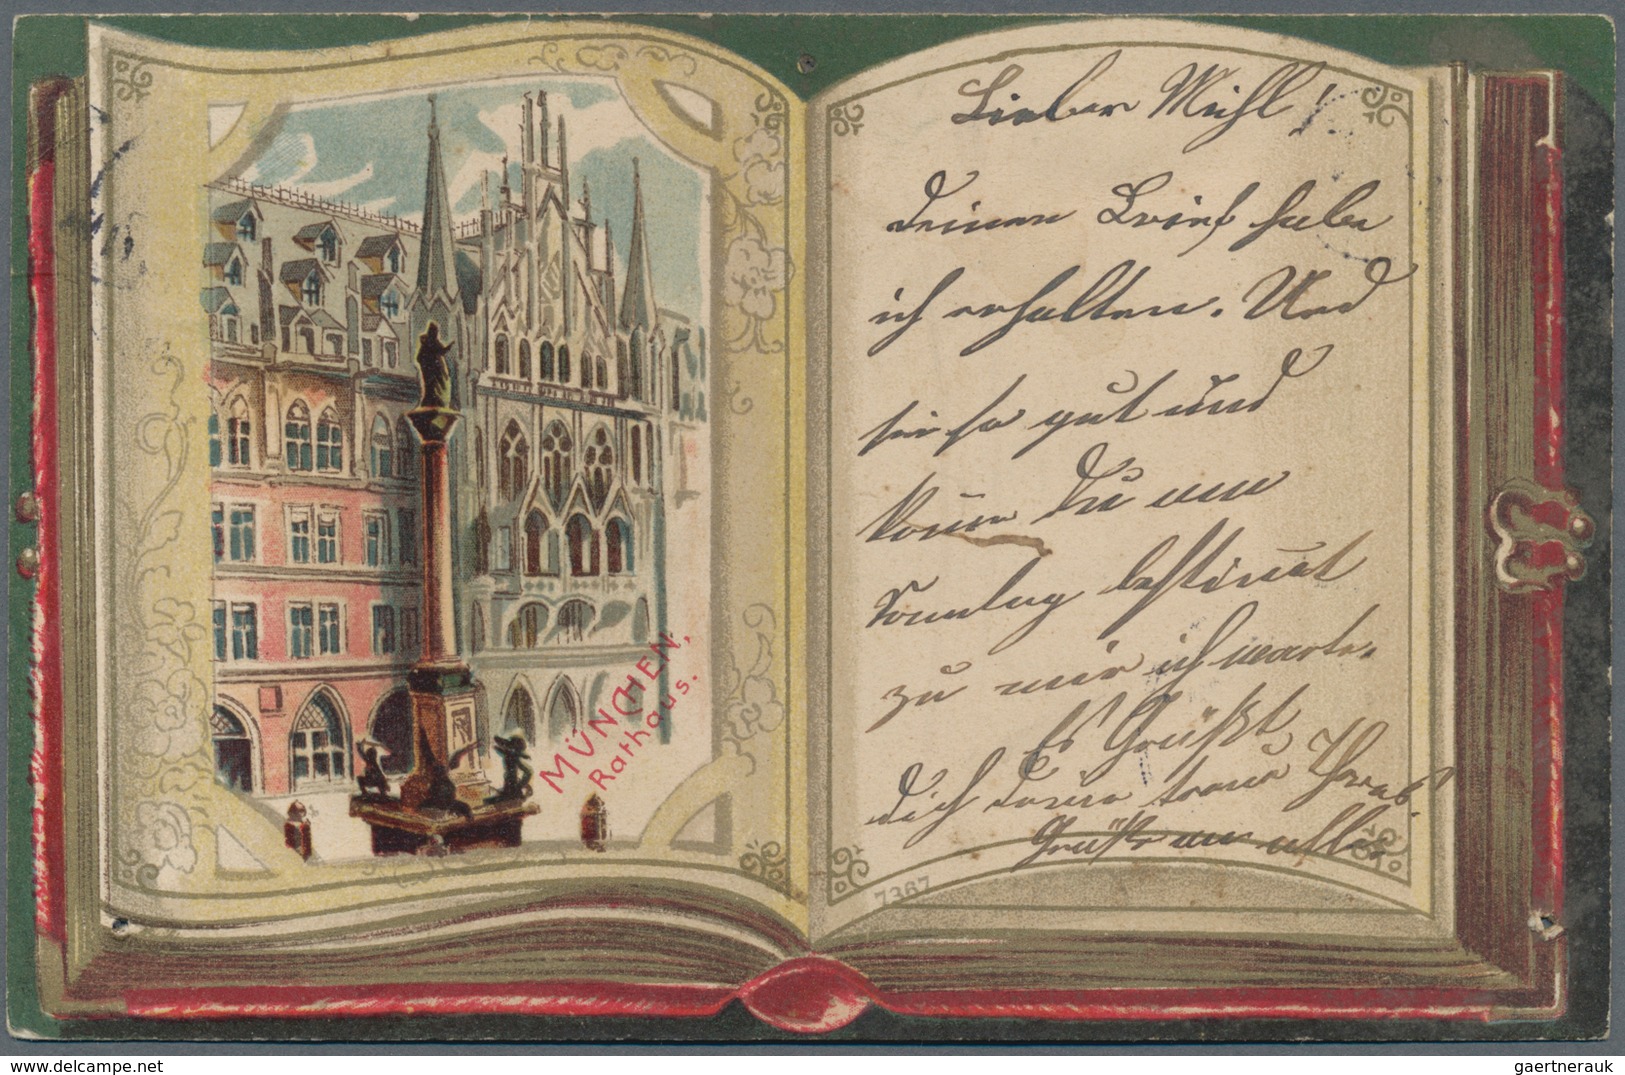 MÜNCHEN,
Rathaus.
Lieber Michl!
Deinen Brief habe
ich erhalten. Und
sei so gut und
komme Du am
Sonntag bestimmt
zu mir ich warte.
Es Grüßt
dich deine treue
Grüße an alle
7367
www.delcampe.net
gaertnerauk